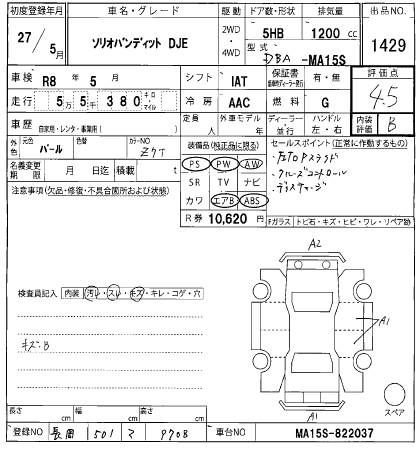 初度登録年月 車名・グレード 駆動 ドア数・形状 排気量 出品NO.
27/5月 ソリオバンディット DJE 2WD・4WD 5HB 1200 cc 1429
型式 DBA-MA15S
車検 R8年 5月 シフト IAT 保証書 有・無 評価点
走行 5万5千380 キロ・マイル 冷房 AAC 燃料 G 4.5
車歴 自家用・レンタ・事業用( ) 定員 人 外車モデル 年 ディーラー 並行 ハンドル 左・右 内装評価 B
外色 元色 パール 色替 カラーNO ZVT 装備品(純正品に限る) セールスポイント(正常に作動するもの)
名義変更期限 月 日迄 積載 t PS PW AW
注意事項(欠品・修復・不具合箇所および状態) SR TV ナビ
・クルーズコントロール
カワ エアB ABS
R券 10,620円 Fガラス トビ石・キズ・ヒビ・ワレ・リペア跡
A2
検査員記入 内装 汚レ・スレ・キズ・キレ・コゲ・穴
A1
キズ・B
スペア
長さ cm 幅 cm 高さ cm
A1
登録NO 長岡 501 マ 9708 車台NO MA15S-822037